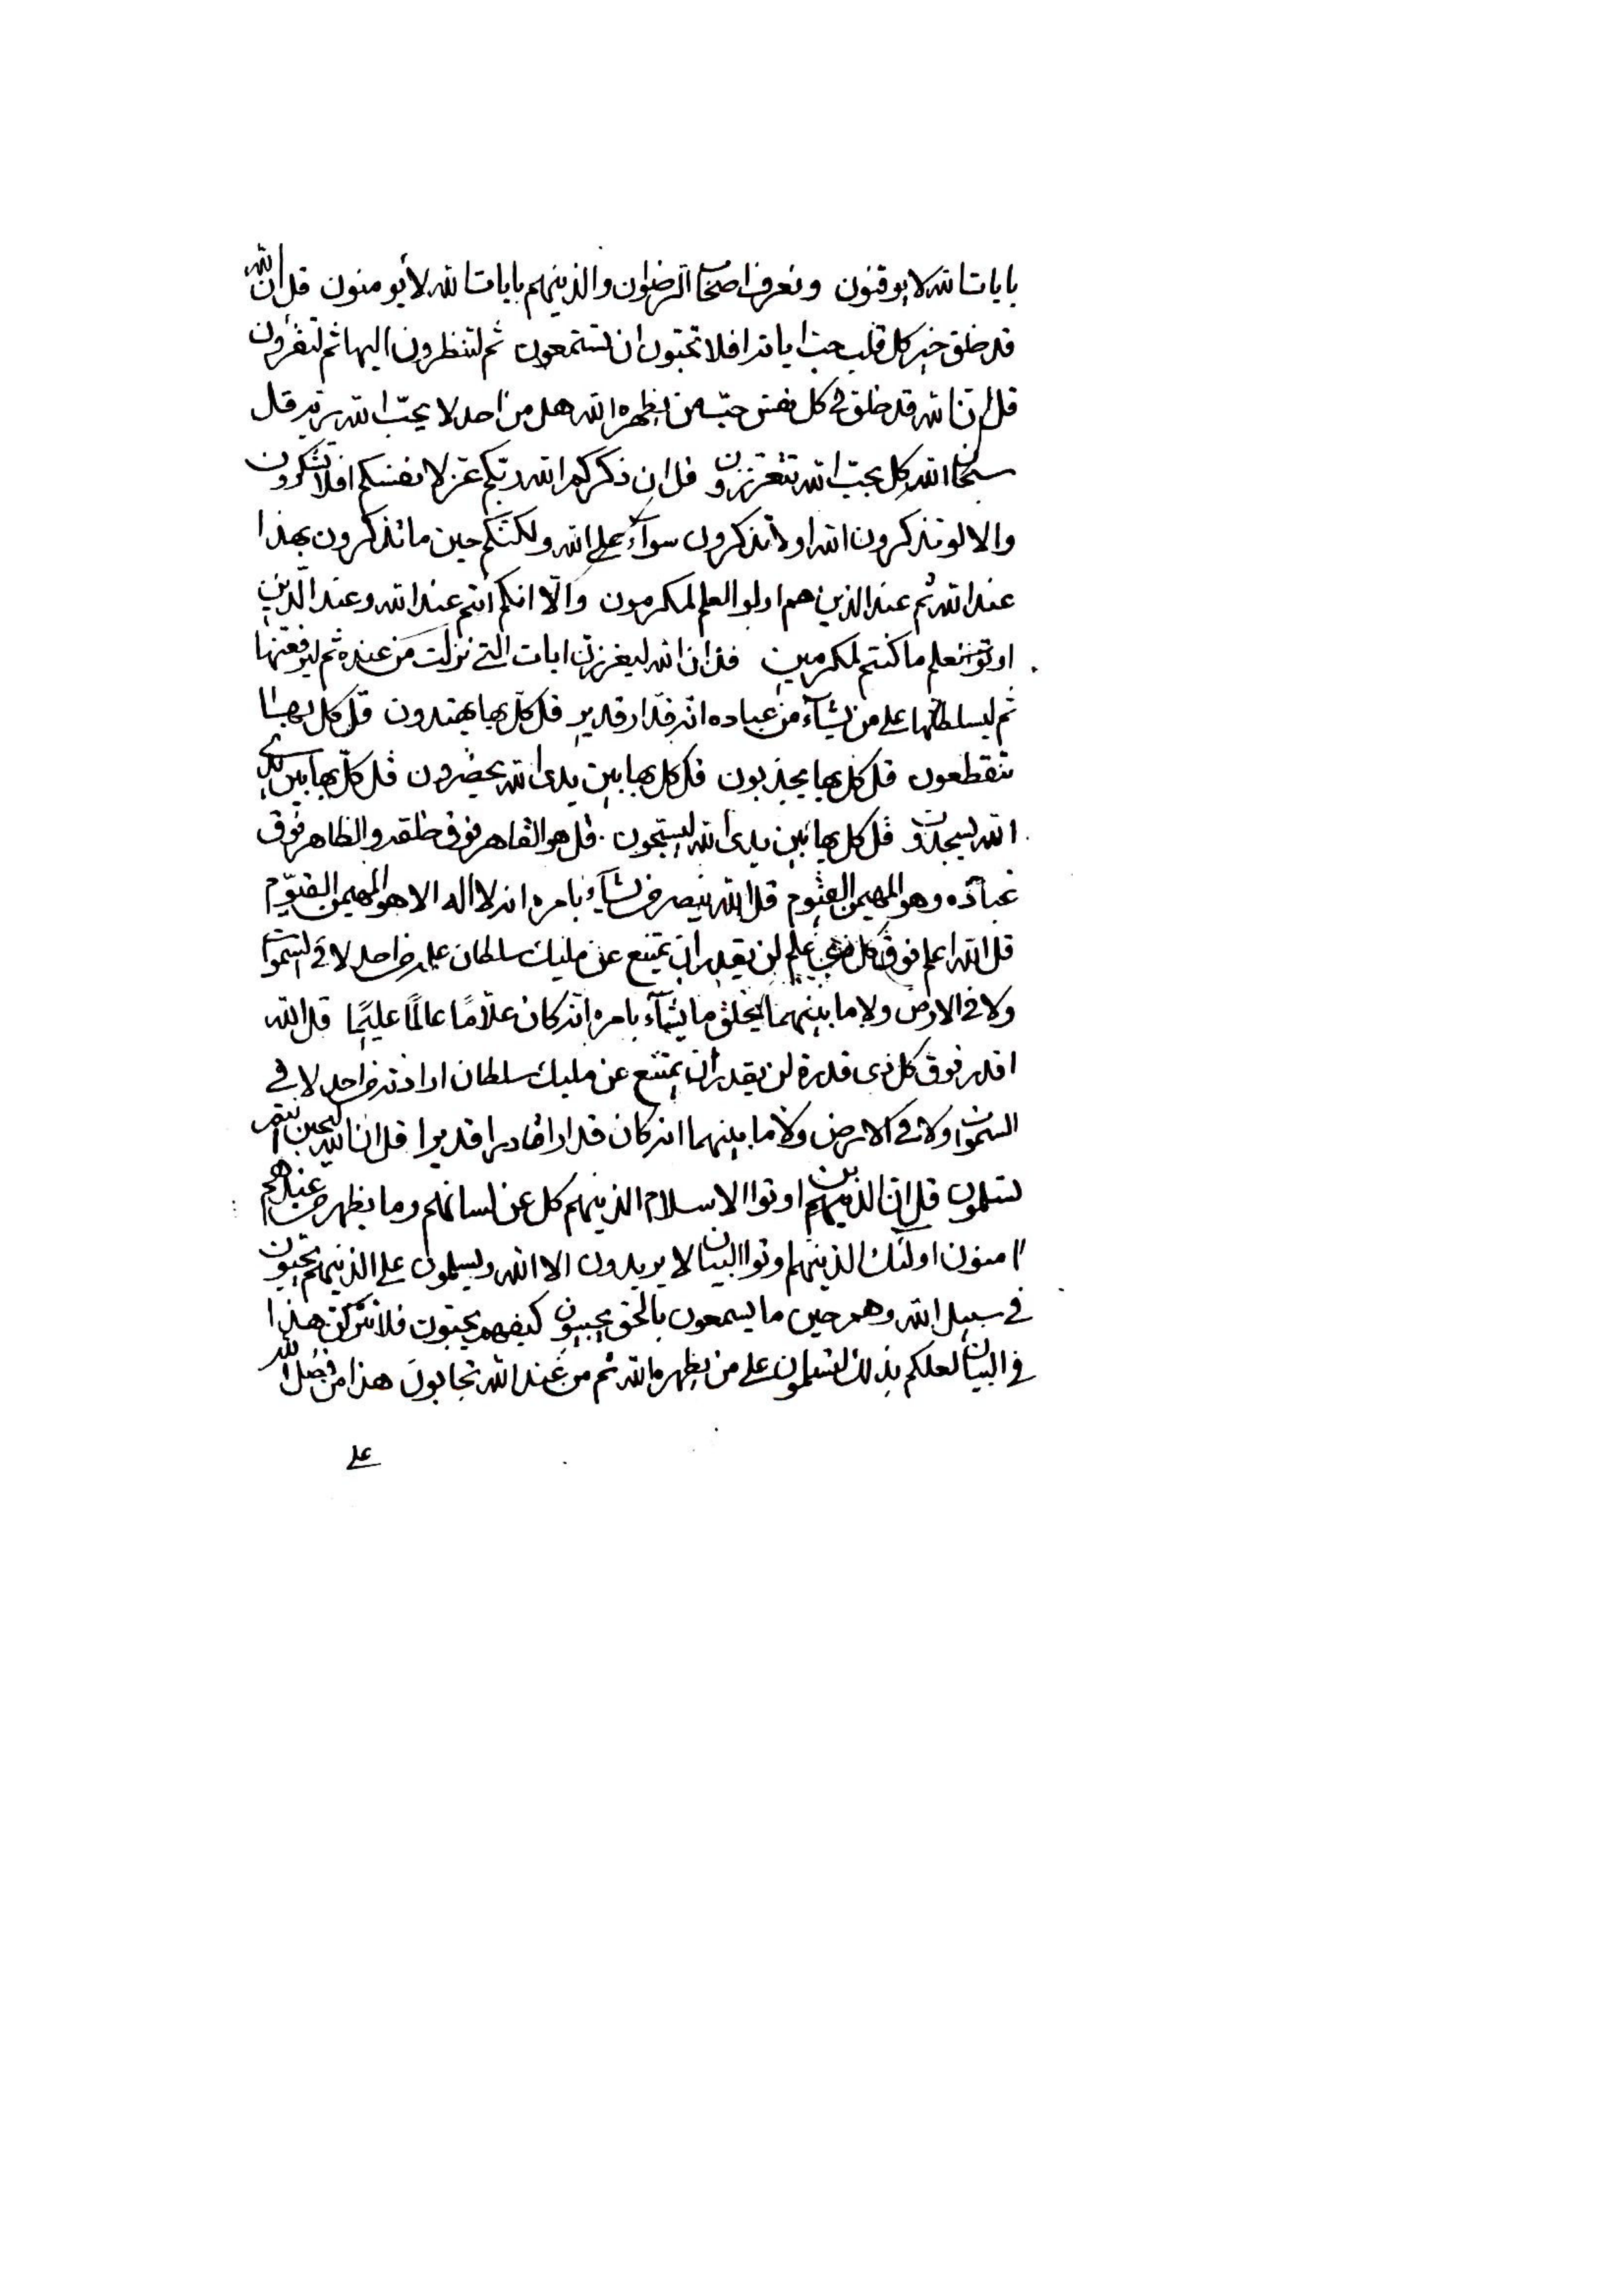 بایات الله لایوقنون ونعرف اصحاب الرضوان والذینهم بایات الله لایومنون قل ان الله
قد خلق خیر کل قلب حب ایاته افلا تحبون ان تستمعون ثم لتنظرون الیها ثم لتقرؤن
قل ان الله قد خلق فی کل نفس حب من یظهره الله هل من احد لا یحب الله ربه قل
سبحان الله کل بحب الله تتعززون قل ان ذکرکم الله ربکم عز لانفسکم افلا تشکرون
والا لو تذکرون الله او لا تذکرون سوآء علی الله ولکنکم حین ما تذکرون بهذا
عند الله ثم عند الذین هم اولوالعلم لمکرمون والّا انکم انتم عند الله وعند الّذین
اوتوا العلم ما کنتم لمکرمین قل ان الله لیعززن ایات التی نزلت من عنده ثم لیرفعنها
ثم لیسلطنها علی من یشآء من عباده انه قدّار قدیر قل کلّ بها یهتدون قل کل بها
تنقطعون قل کل بها یجذبون قل کل بها بین یدی الله یحضرون قل کلّ بها بین یدی
الله یسجدون قل کل بها بین یدی الله لیسبحون قل هو القاهر فوق خلقه والظاهر فوق
عباده وهو المهیمن القیّوم قل الله ینصر من یشآء بامره انه لا اله الا هو المهیمن القیّوم
قل الله اعلم فوق کل ذی علم لن یقدر ان یمتنع عن ملیک سلطان علمه من احد لا فی السموات
ولا فی الارض ولا ما بینهما یخلق ما یشآء بامره انّه کان علّامًا عالمًا علیمًا قل الله
اقدر فوق کل ذی قدرة لن یقدر ان یمتنع عن ملیک سلطان ارادته من احد لا فی
السموات ولا فی الارض ولا ما بینهما انه کان قدارا قادرا قدیرا قل ان الله لیحبن
لتسلمون قل ان الذینهم اوتوا الاسلام الذینهم کل عن لسانهم وما یظهر من عندهم
امنون اولئک الذینهم اوتوا البیان لا یریدون الا الله ویسلمون علی الذینهم یحبون
فی سبیل الله وهم حین ما یسمعون بالحق یجیبون کیفهم یحبون فلا تترکن هذا
فی البیان لعلکم بذلک لتسلمون علی من یظهره الله ثم من عند الله تجابون هذا من فضل الله
علی